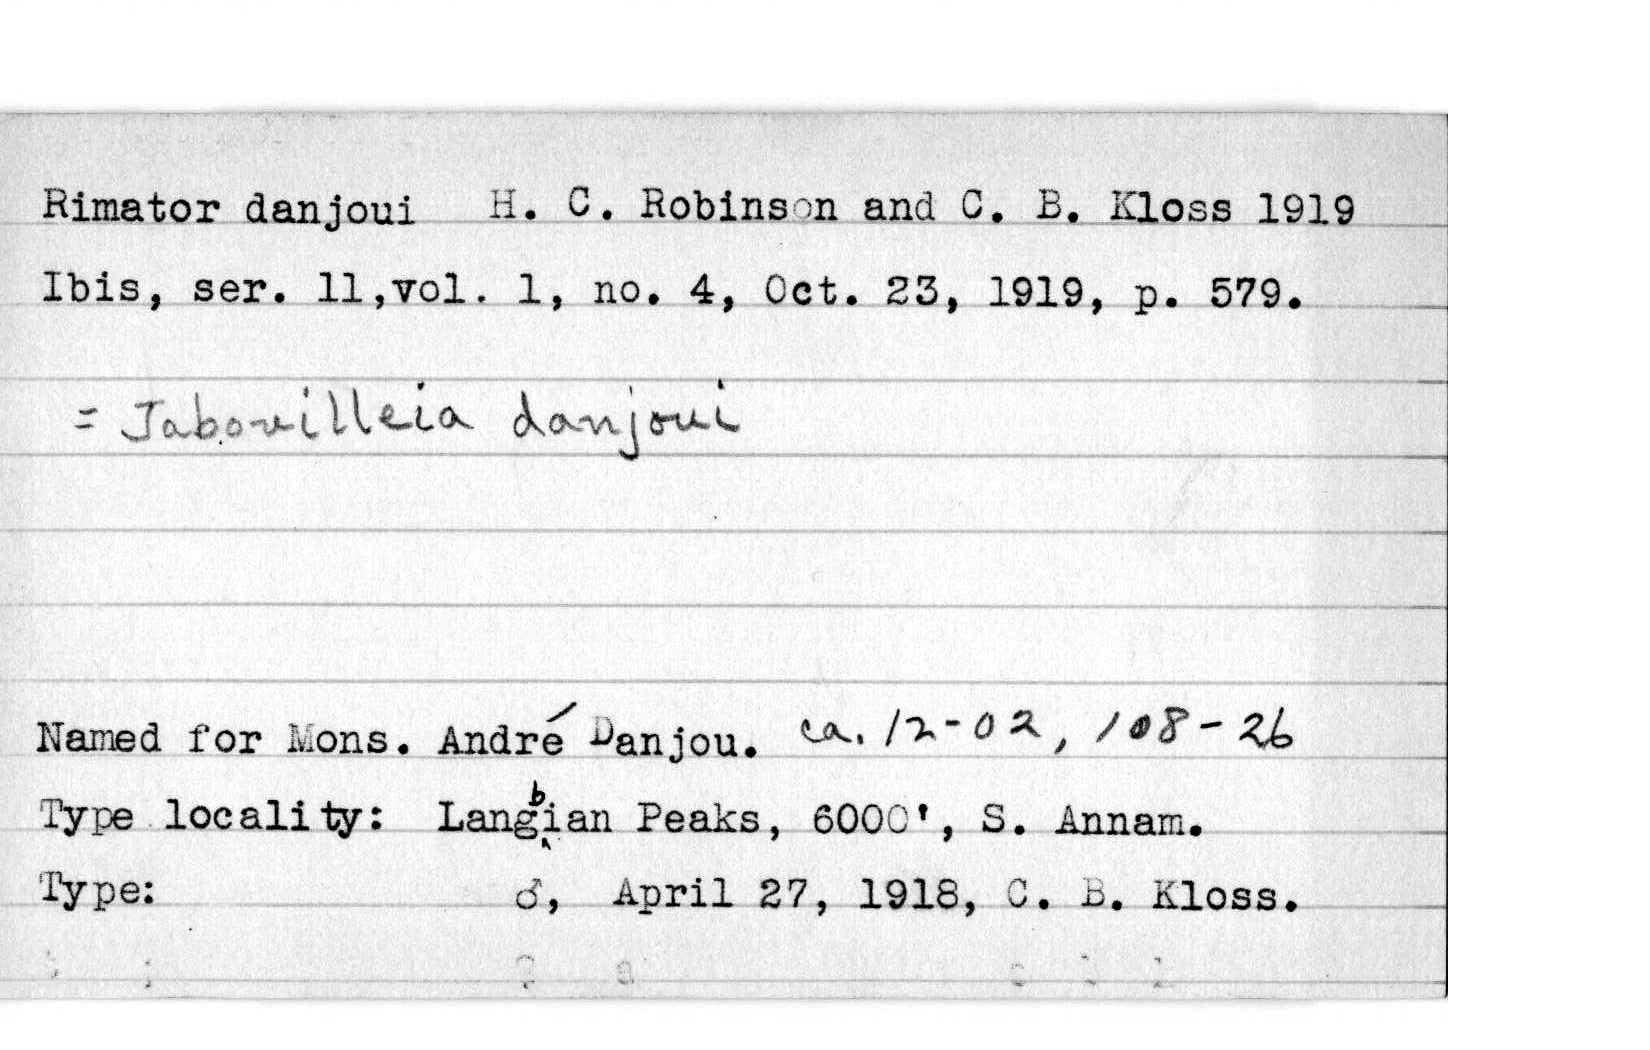 Rimator danjoui H. C. Robinson and C. B. Kloss 1919
Ibis, ser. 11,vol. 1, no. 4, Oct. 23, 1919, p. 579.
= Jabouilleia danjoui
Named for Mons. André Danjou. ca. 12-02, 108-26
Type locality: Langbian Peaks, 6000', S. Annam.
Type: ♂, April 27, 1918, C. B. Kloss.